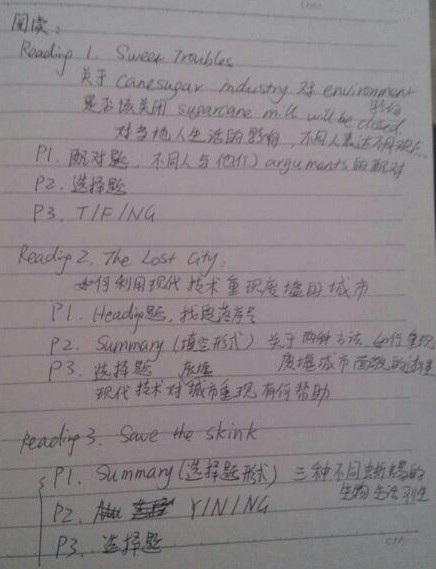 阅读:
Reading 1. Sweet Troubles
关于 canesugar industry 对 environment 影响
是否该关闭 sugarcane mill will be closed
对当地人生活的影响, 不同人表达不同观点...
P1. 配对题, 不同人与他(们) arguments 的配对
P2. 选择题
P3. T/F/NG
Reading 2. The Lost City.
如何利用现代技术重现废墟的城市
P1. Heading题, 找段落序号
P2. Summary (填空形式) 关于两种方法, 如何重现
废墟城市 的过程
P3. 选择题
现代技术对城市重现有何帮助
Reading 3. Save the skink
P1. Summary (选择题形式) 三种不同蜥蜴的
生物生活习性
P2. Y/N/NG
P3. 选择题